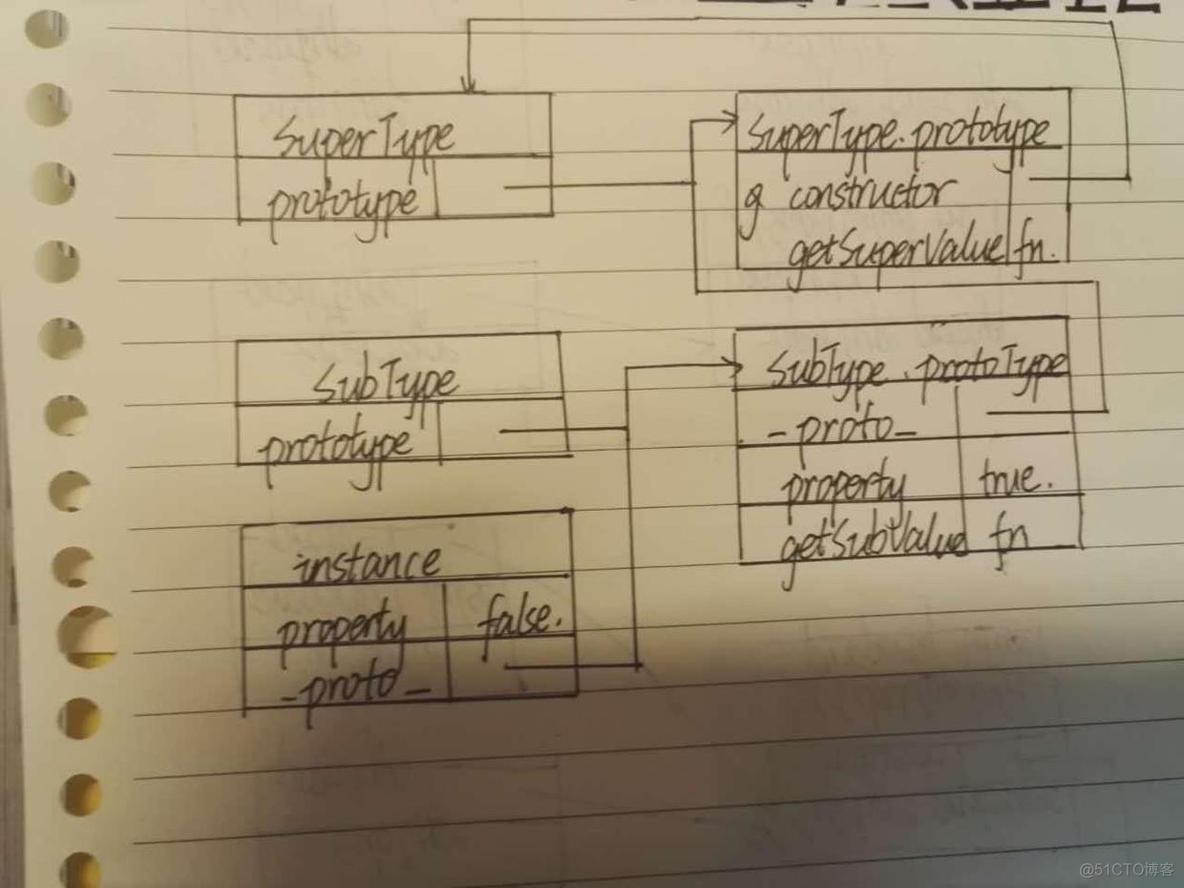 SuperType
prototype
SuperType.prototype
g constructor
getSuperValue fn.
SubType
prototype
SubType.protoType
_proto_
property true.
getSubValue fn
instance
property false.
_proto_
@51CTO博客